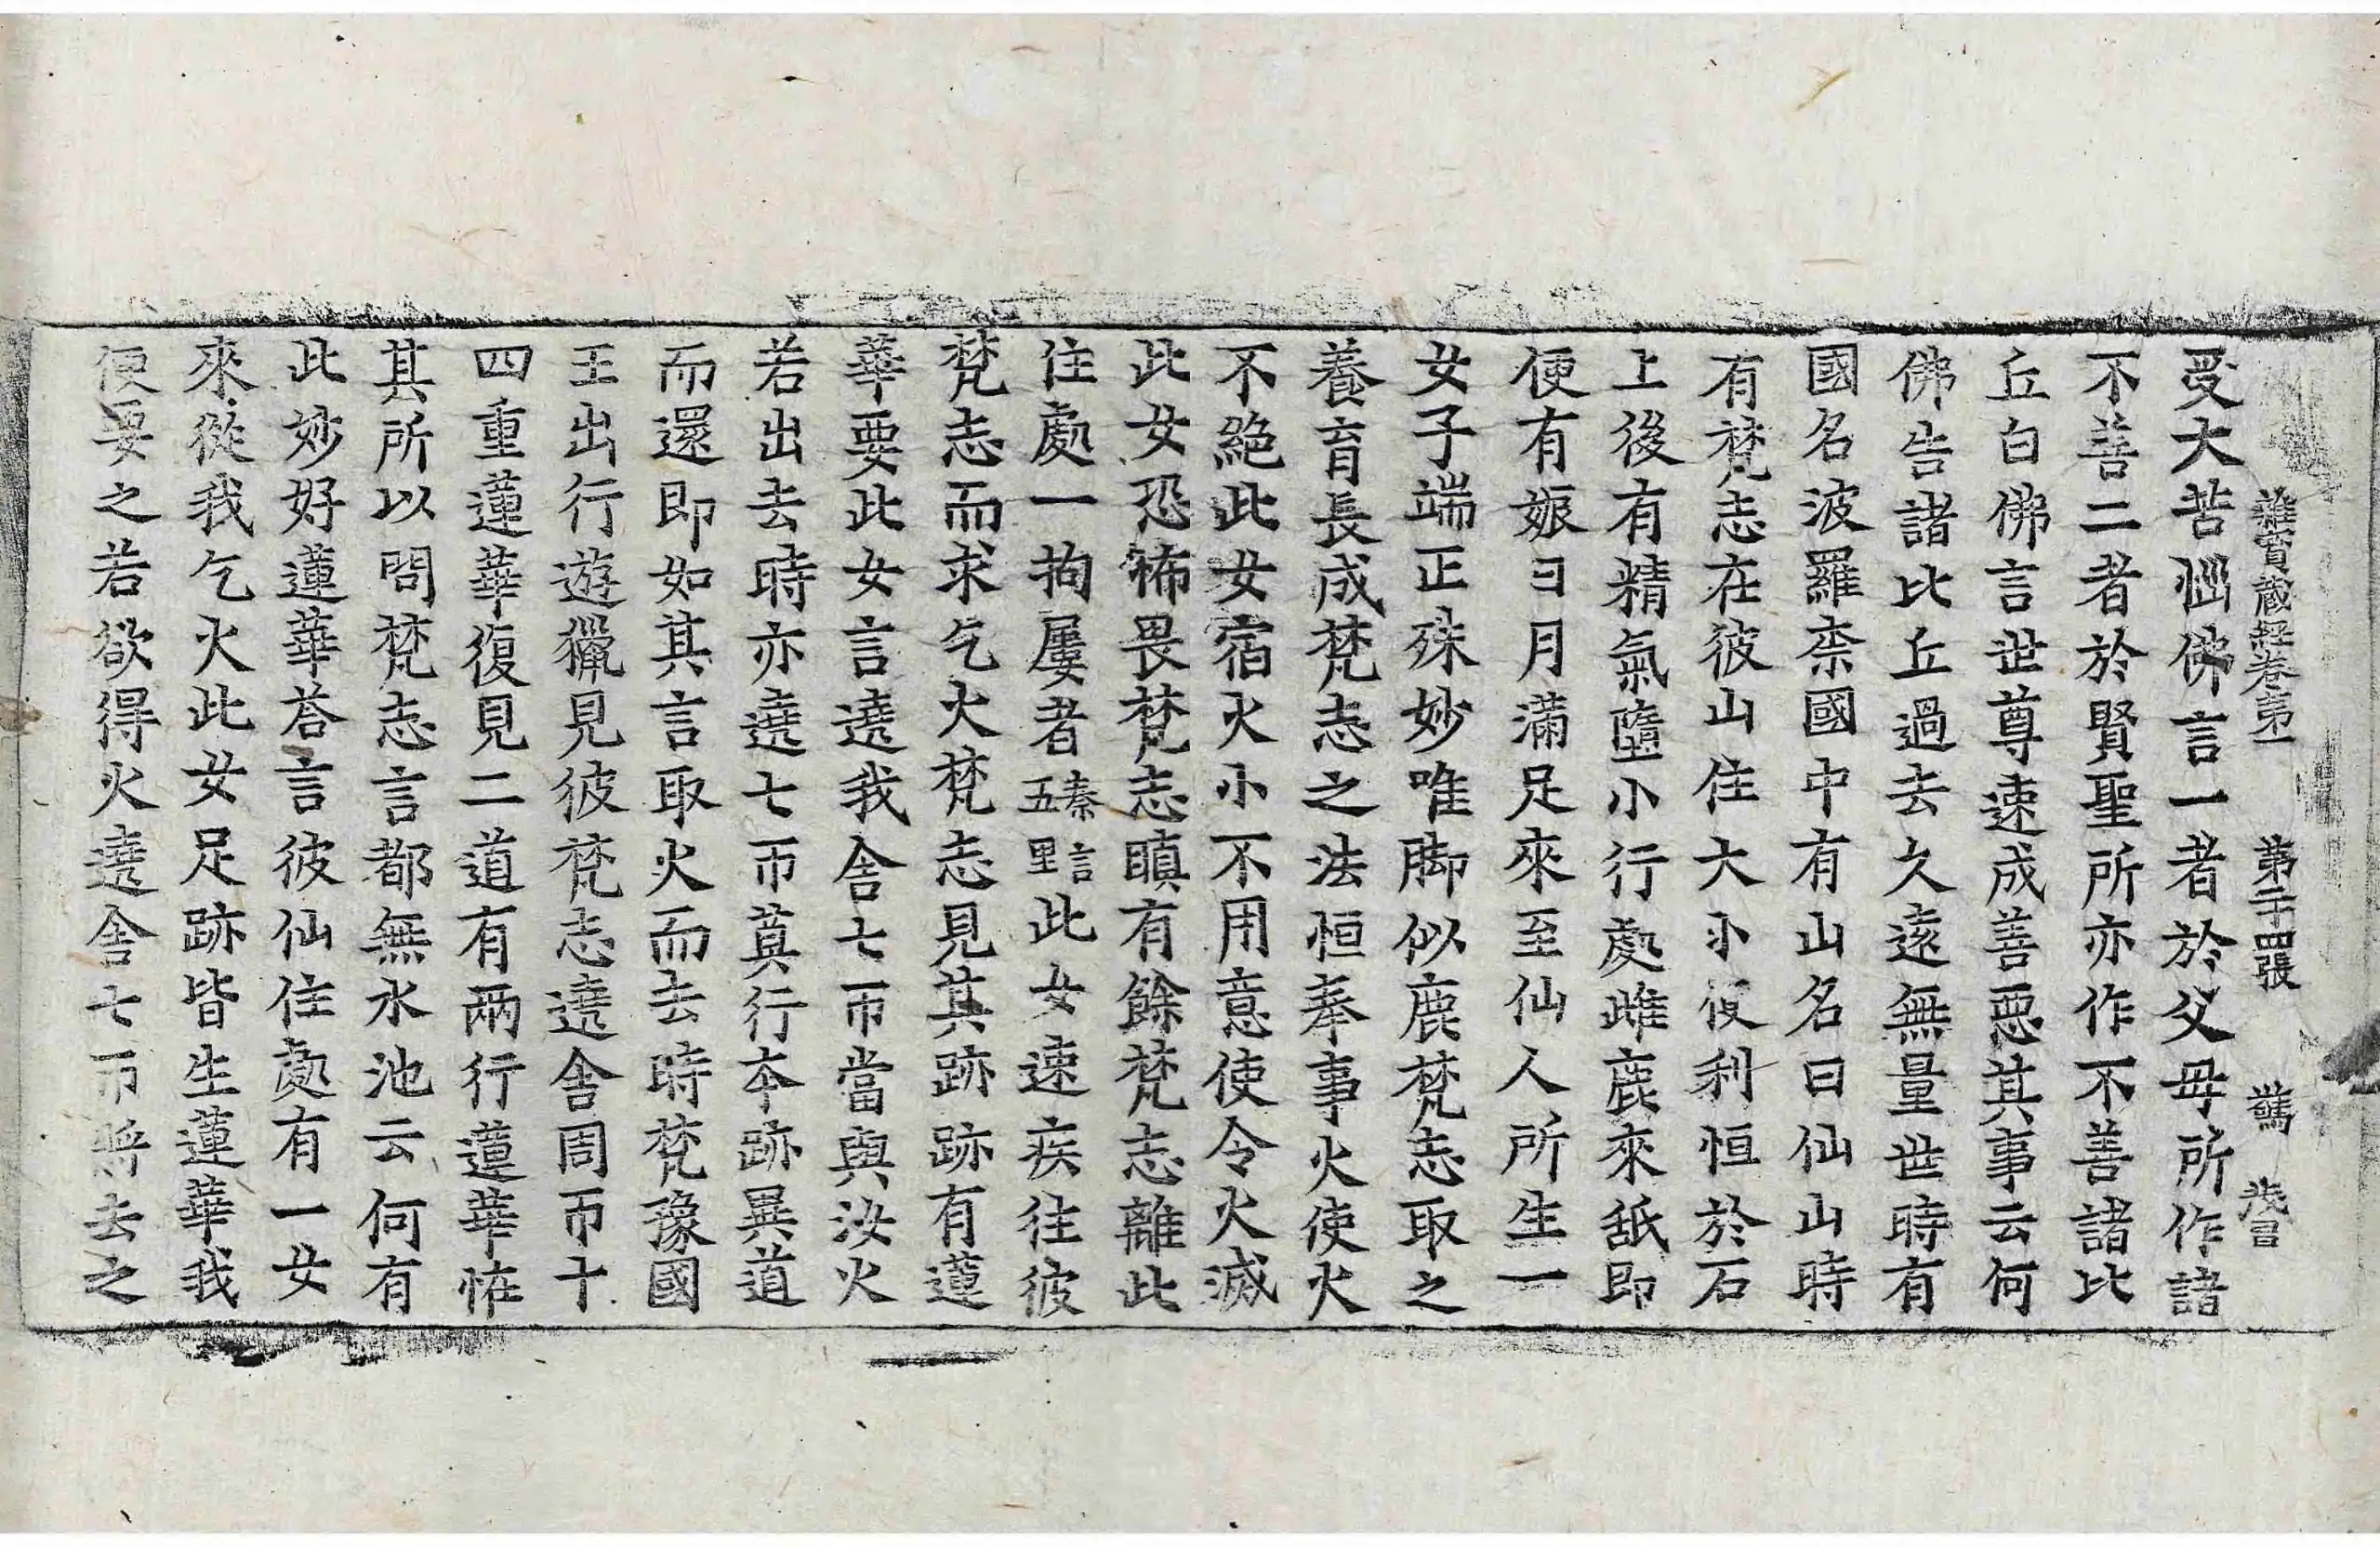 雜寶藏經卷第一 第二十四張 驚
受大苦惱佛言一者於父母所作諸
不善二者於賢聖所亦作不善諸比
丘白佛言世尊速成善惡其事云何
佛告諸比丘過去久遠無量世時有
國名波羅柰國中有山名曰仙山時
有梵志在彼山住大小便利恒於石
上後有精氣墮小行處雌鹿來舐即
便有娠日月滿足來至仙人所生一
女子端正殊妙唯脚似鹿梵志取之
養育長成梵志之法恒奉事火使火
不絶此女宿火小不用意使令火滅
此女恐怖畏梵志瞋有餘梵志離此
住處一拘屢者秦言五里此女速疾往彼
梵志而求乞火梵志見其跡跡有蓮
華要此女言遶我舍七帀當與汝火
若出去時亦遶七帀莫行本跡異道
而還即如其言取火而去時梵豫國
王出行遊獵見彼梵志遶舍周帀十
四重蓮華復見二道有兩行蓮華恠
其所以問梵志言都無水池云何有
此妙好蓮華荅言彼仙住處有一女
來從我乞火此女足跡皆生蓮華我
便要之若欲得火遶舍七帀將去之